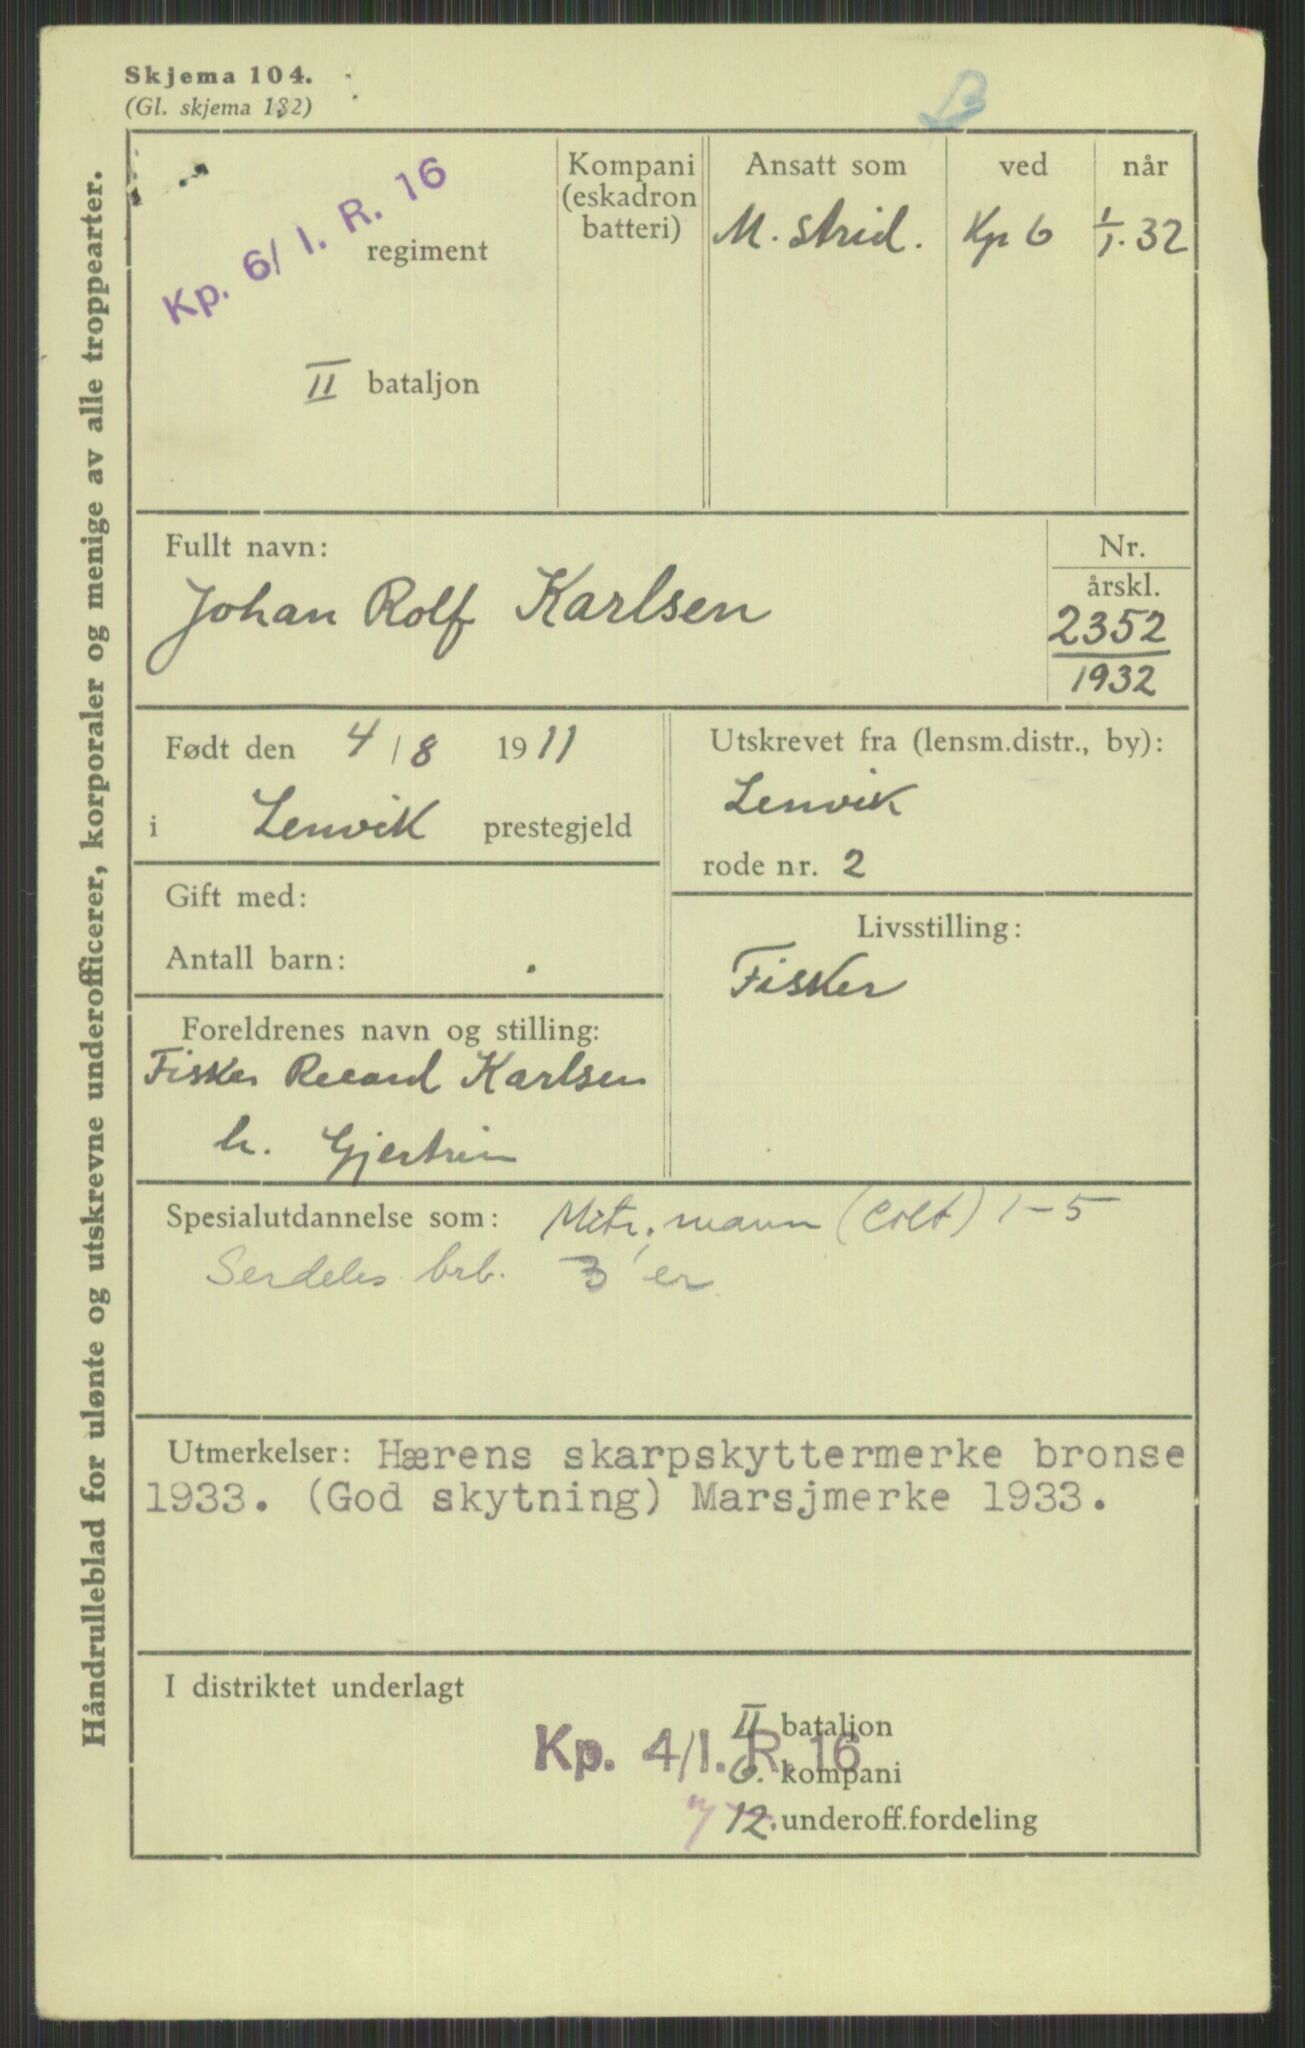 Skjema 104.
(Gl. skjema 132)
B
Håndrulleblad for ulønte og utskrevne underofficerer, korporaler og menige av alle troppearter.
Kp. 6/ I. R. 16
regiment
II bataljon
Kompani
(eskadron
batteri)
Ansatt som
M. strid.
ved
Kp 6
når
1/1. 32
Fullt navn:
Johan Rolf Karlsen
Nr.
årskl.
2352
1932
Født den 4/8 1911
i Lenvik prestegjeld
Utskrevet fra (lensm.distr., by):
Lenvik
rode nr. 2
Gift med:
Antall barn:
Livsstilling:
Fisker
Foreldrenes navn og stilling:
Fisker Recard Karlsen
h. Gjertrin
Spesialutdannelse som: Mitr. mann (Colt) 1-5
Serdeles brb. 3'er
Utmerkelser: Hærens skarpskyttermerke bronse
1933. (God skytning) Marsjmerke 1933.
I distriktet underlagt
II bataljon
Kp. 4/I. R. 16
6. kompani
12. underoff.fordeling